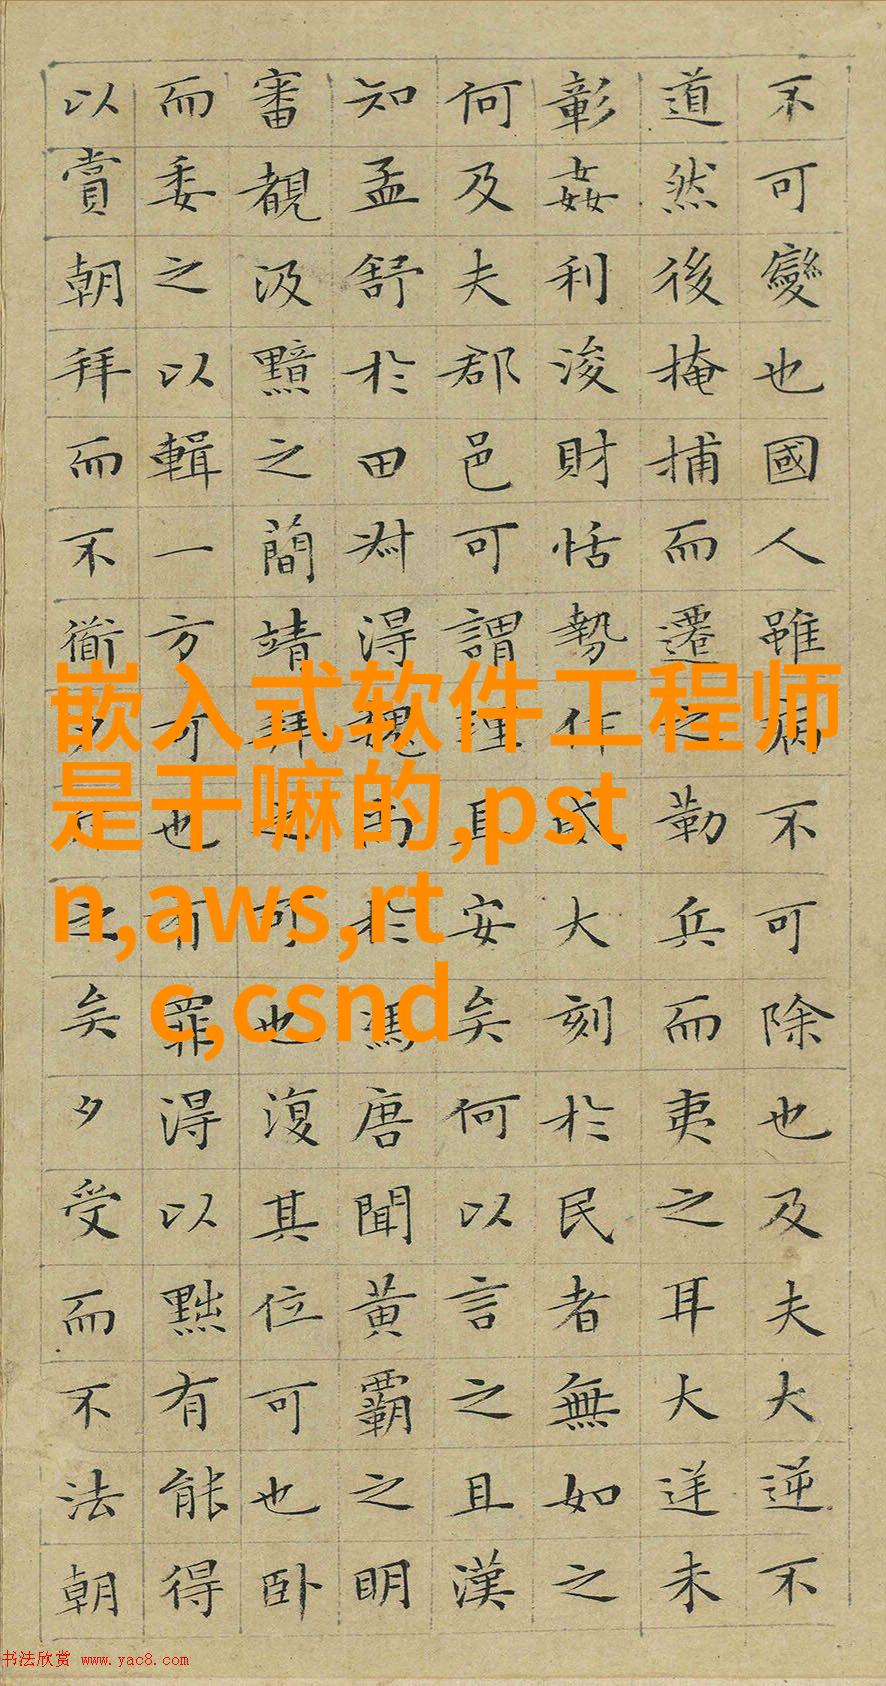 不可變也國人雖病不可除也及夫大逆不
道然後掩捕而遷之勒兵而夷之耳大逆未
彰姦利浚財怙勢作威大刻於民者無如之
何及夫郡邑可謂理且安矣何以言之且漢
知孟舒於田叔得魏尚於馮唐聞黃霸之明
審覩汲黯之簡靖拜之可也復其位可也卧
而委之以輯一方可也有罪得以黜有能得
以賞朝拜而不道夕斥之矣夕受而不法朝
嵌入式软件工程师
是干嘛的,pst
n,aws,rt
c,csnd
书法欣赏 www.yac8.com